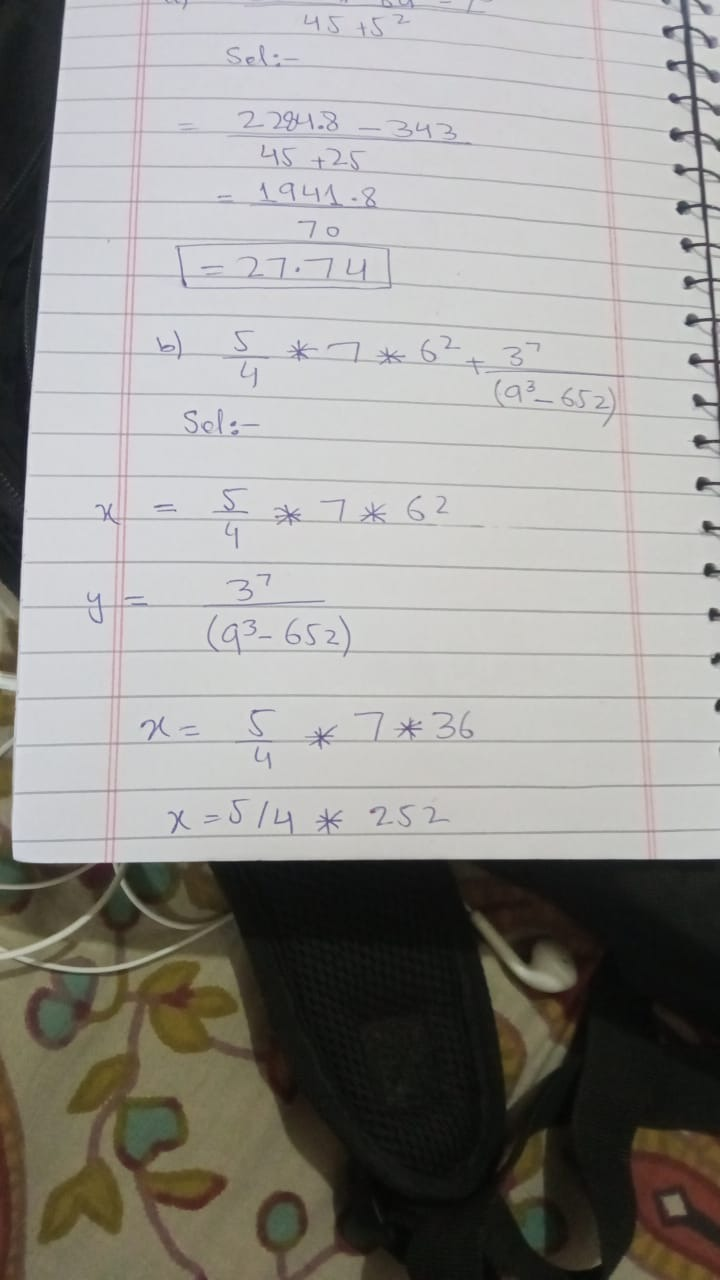 45 + 5²
Sol:-
= 2284.8 - 343
45 + 25
= 1941.8
70
= 27.74
b) 5/4 * 7 * 6² + 3⁷/(9³ - 652)
Sol:-
x = 5/4 * 7 * 6²
y = 3⁷/(9³ - 652)
x = 5/4 * 7 * 36
x = 5/4 * 252